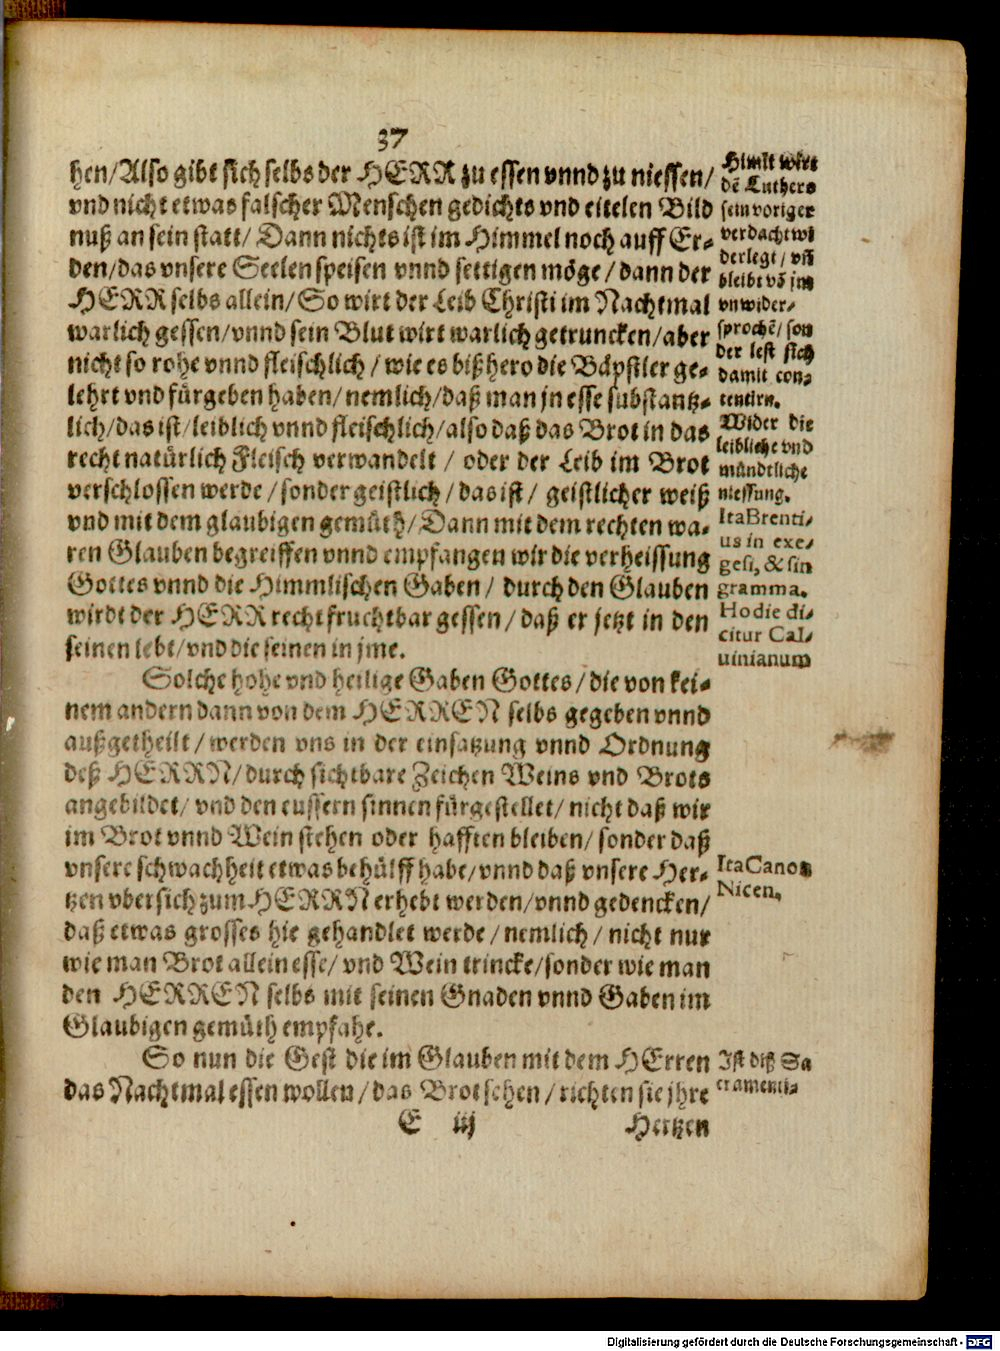 37
hen/Also gibt sich selbs der HERR zu essen vnnd zu niessen/
vnd nicht etwas falscher Menschen gedichts vnd eitelen Bild
nuß an sein statt/ Dann nichts ist im Himmel noch auff Er-
den/das vnsere Seelen speisen vnnd settigen möge/dann der
HERR selbs allein/ So wirt der Leib Christi im Nachtmal
warlich gessen/vnnd sein Blut wirt warlich getruncken/aber
nicht so rohe vnnd fleischlich / wie es bißhero die Bäpstler ge-
lehrt vnd fürgeben haben/ nemlich/daß man jn esse substantz-
lich/das ist/leiblich vnnd fleischlich/also daß das Brot in das
recht natürlich Fleisch verwandelt / oder der Leib im Brot
verschlossen werde/sonder geistlich/das ist/ geistlicher weiß
vnd mit dem glaubigen gemüth/Dann mit dem rechten wa-
ren Glauben begreiffen vnnd empfangen wir die verheissung
Gottes vnnd die Himmlischen Gaben/ durch den Glauben
wirdt der HERR recht fruchtbar gessen/daß er jetzt in den
seinen lebt/vnd die seinen in jme.
Solche hohe vnd heilige Gaben Gottes/die von kei-
nem andern dann von dem HERREN selbs gegeben vnnd
außgetheilt/werden vns in der einsatzung vnnd Ordnung
deß HERRN/durch sichtbare Zeichen Weins vnd Brots
angebildet/ vnd den eussern sinnen fürgestellet/ nicht daß wir
im Brot vnnd Wein stehen oder hafften bleiben/sonder daß
vnsere schwachheit etwas behülff habe/vnnd daß vnsere Her-
tzen vbersich zum HERRN erhebt werden/vnnd gedencken/
daß etwas grosses hie gehandlet werde/nemlich/ nicht nur
wie man Brot allein esse/ vnd Wein trincke/sonder wie man
den HERREN selbs mit seinen Gnaden vnnd Gaben im
Glaubigen gemüth empfahe.
So nun die Gest die im Glauben mit dem HErren
das Nachtmal essen wollen/das Brot sehen/richten sie jhre
E iij Hertzen
Himit wirt
dē Luthers
sein voriger
verdacht wi
derlegt/ vñ
bleibt vō jm
vnwider-
sprochē/ son
der lest sich
damit con-
tentirn.
Wider die
leibliche vnd
mündtliche
niessung.
Ita Brenti-
us in exe-
gesi, & sin
gramma.
Hodie di-
citur Cal-
uinianum
Ita Canon
Nicen.
Ist diß Sa
cramenti-
Digitalisierung gefördert durch die Deutsche Forschungsgemeinschaft - DFG